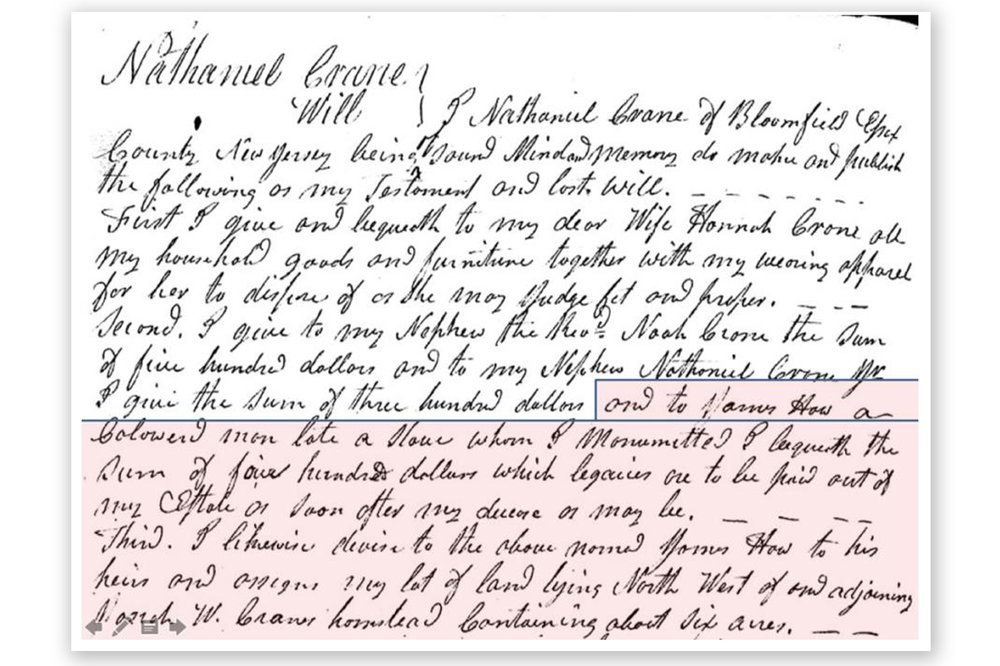 Nathaniel Crane
Will } I Nathaniel Crane of Bloomfield Essex
County New Jersey being of sound Mind and Memory do make and publish
the following as my Testament and last will. _ _ _ _ _ _ _
First I give and bequeath to my dear Wife Hannah Crane all
my household goods and furniture together with my wearing apparel
for her to dispose of as she may Judge fit and proper. _ _ _
Second. I give to my Nephew the Revd. Noah Crane the sum
of five hundred dollars and to my Nephew Nathaniel Crane Jr
I give the sum of three hundred dollars and to James How a
Colowerd man late a slave whom I Manumitted I bequeath the
sum of hundred dollars which legacies are to be paid out of
my Estate as soon after my decease as may be. _ _ _ _
Third. I likewise devise to the above named James How to his
heirs and assigns my lot of land lying North West of and adjoining
W. Cranes homstead Containing about six acres. _ _